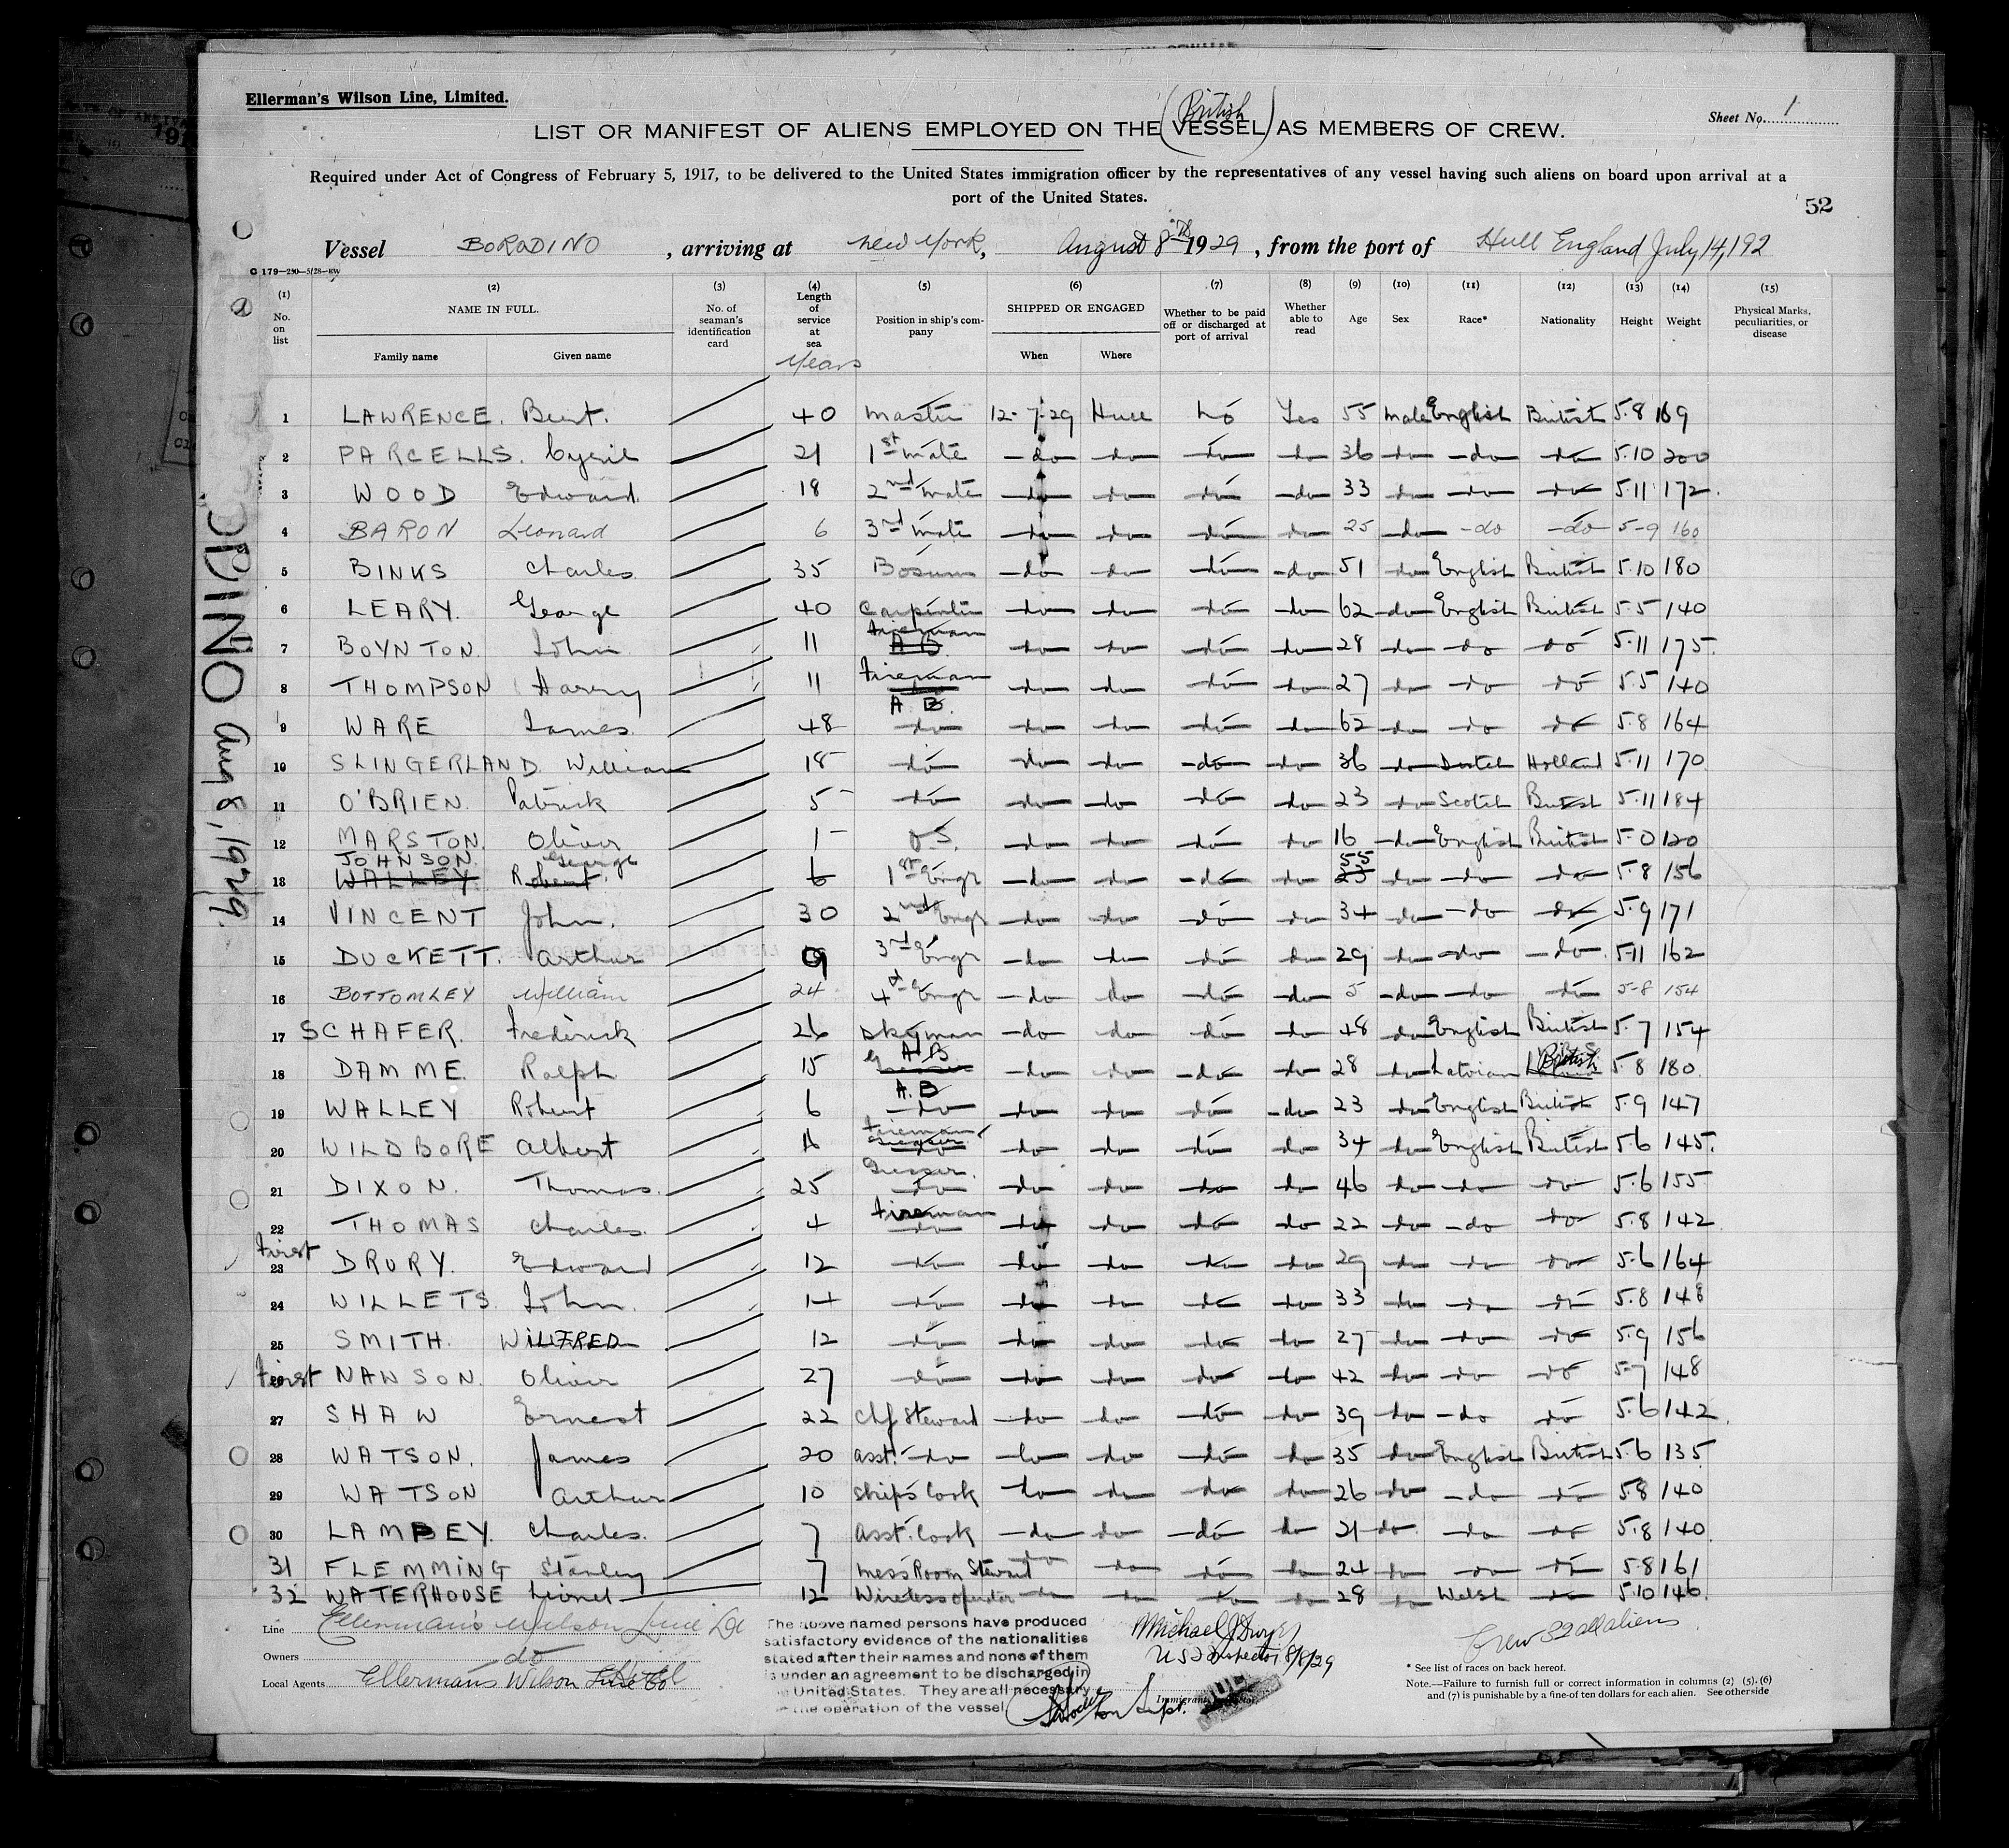 Ellerman's Wilson Line, Limited.
(British)
LIST OR MANIFEST OF ALIENS EMPLOYED ON THE VESSEL AS MEMBERS OF CREW.
Sheet No. 1
Required under Act of Congress of February 5, 1917, to be delivered to the United States immigration officer by the representatives of any vessel having such aliens on board upon arrival at a
port of the United States.
52
Vessel BORODINO, arriving at New York, August 8th 1929, from the port of Hull England July 14, 192
G 179-250-5/28-RW
(1) No. on list (2) NAME IN FULL. Family name Given name (3) No. of seaman's identification card (4) Length of service at sea Years (5) Position in ship's company (6) SHIPPED OR ENGAGED When Where (7) Whether to be paid off or discharged at port of arrival (8) Whether able to read (9) Age (10) Sex (11) Race* (12) Nationality (13) Height (14) Weight (15) Physical Marks, peculiarities, or disease
1 LAWRENCE. Bert. 40 Master 12-7-29 Hull No Yes 55 Male English British 5.8 169
2 PARCELLS. Cyril 21 1st Mate do do do do 36 do do do 5.10 200
3 WOOD Edward 18 2nd Mate do do do do 33 do do do 5.11 172
4 BARON Leonard 6 3rd Mate do do do do 25 do do do 5-9 160
5 BINKS Charles 35 Bosun do do do do 51 do English British 5.10 180
6 LEARY. George 40 Carpenter do do do do 62 do English British 5.5 140
7 BOYNTON. John 11 Fireman A B do do do do 28 do do do 5.11 175
8 THOMPSON Harry 11 Fireman do do do do do 27 do do do 5.5 140
9 WARE James 48 A. B. do do do do do 62 do do do 5.8 164
10 SLINGERLAND William 18 do do do do do 36 do Dutch Holland 5.11 170
11 O'BRIEN. Patrick 5 do do do do do 23 do Scotch British 5.11 184
12 MARSTON. Oliver 1 O.S. do do do do 16 do English British 5.0 120
JOHNSON. George 55
13 WALLEY. Robert 6 1st Engr do do do do 23 do do do 5.8 156
14 VINCENT John. 30 2nd Engr do do do do 34 do do do 5.9 171
15 DUCKETT. Arthur 9 3rd Engr do do do do 29 do do do 5.11 162
16 BOTTOMLEY William 24 4th Engr do do do do 5 do do do 5-8 154
17 SCHAFER. Frederick 26 Dkyman do do do do 48 do English British 5.7 154
18 DAMME. Ralph 15 A.B. do do do do 28 do Latvian British 5.8 180
19 WALLEY Robert 6 A.B do do do do do 23 do English British 5.9 147
20 WILDBORE Albert 16 Fireman Greaser do do do do do 34 do English British 5.6 145
21 DIXON. Thomas. 25 Greaser. do do do do do 46 do do do 5.6 155
22 THOMAS Charles. 4 Fireman do do do do do 22 do do do 5.8 142
First
23 DRURY. Edward 12 do do do do do 29 do do do 5.6 164
24 WILLETS. John. 14 do do do do do 33 do do do 5.8 148
25 SMITH. WILFRED 12 do do do do do 27 do do do 5.9 156
First NAWSON. Oliver 27 do do do do do 42 do do do 5-7 148
27 SHAW Ernest 22 Chf Steward do do do do 39 do do do 5.6 142
28 WATSON. James 20 Asst. do do do do do 35 do English British 5.6 135
29 WATSON Arthur 10 Ship's Cook do do do do 26 do do do 5.8 140
30 LAMBEY. Charles. 7 Asst. Cook do do do do 21 do do do 5.8 140
31 FLEMMING Stanley 7 Mess Room Steward do do do do 24 do do do 5.8 161
32 WATERHOUSE Lionel 12 Wireless operator do do do do 28 do Welsh do 5.10 146
BORODINO Aug 8, 1929.
Line Ellerman's Wilson Line Ld
Owners do
Local Agents Ellermans Wilson Line
The above named persons have produced
satisfactory evidence of the nationalities
stated after their names and none of them
is under an agreement to be discharged in
the United States. They are all necessary
for the operation of the vessel.
Michael J Dwyer
U S Inspector 8/8/29
Supt.
Immigrant
Crew 32 all aliens
* See list of races on back hereof.
Note.—Failure to furnish full or correct information in columns (2) (5), (6)
and (7) is punishable by a fine of ten dollars for each alien. See other side